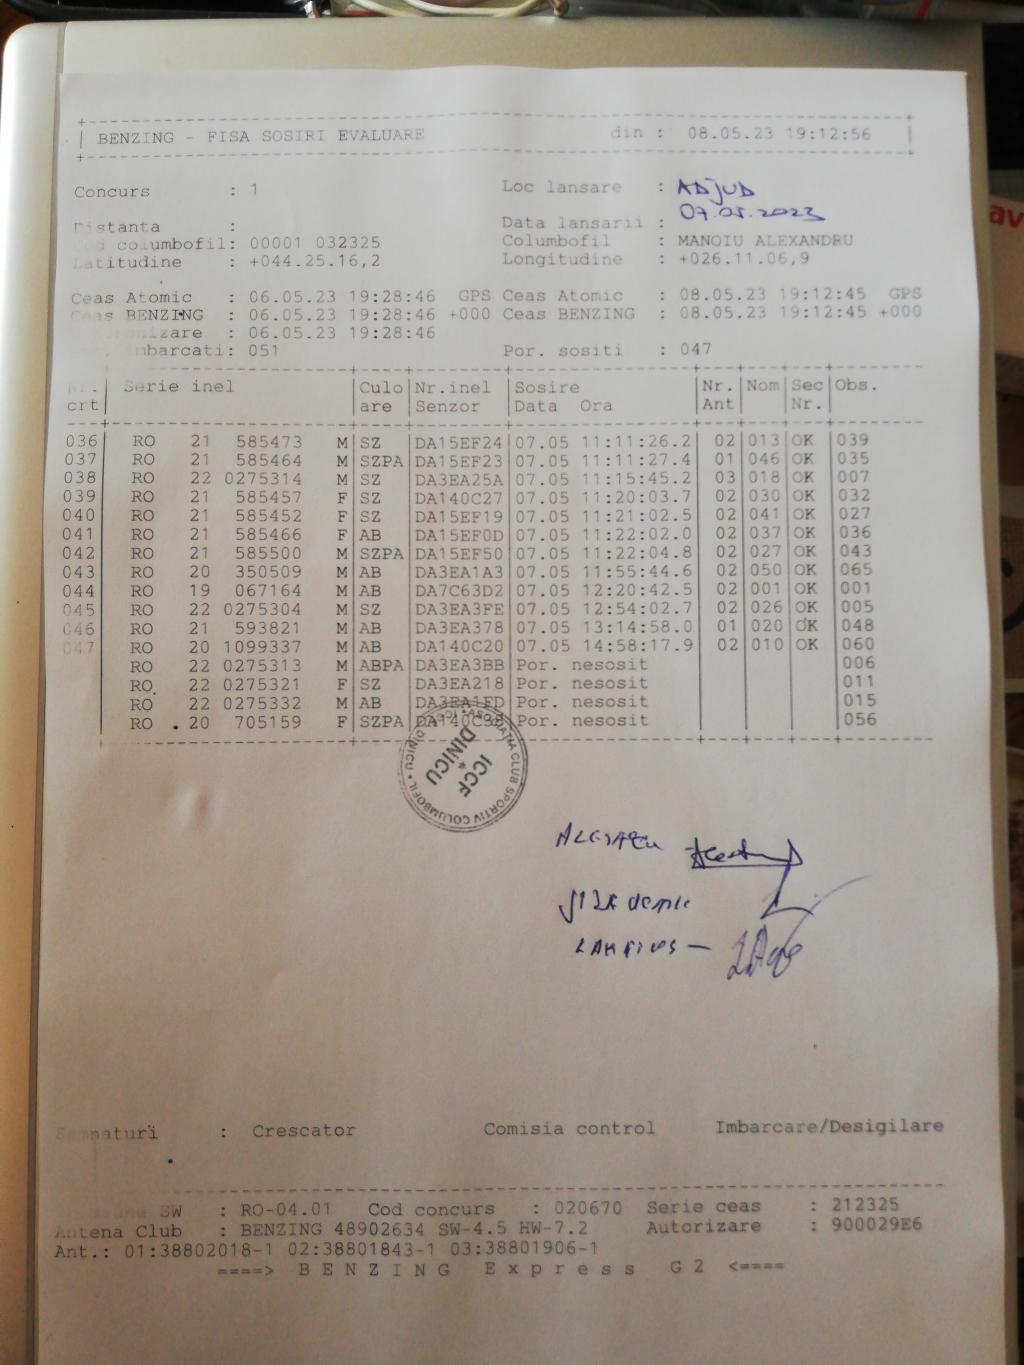 BENZING - FISA SOSIRI EVALUARE din : 08.05.23 19:12:56
Concurs : 1 Loc lansare : ADJUD
Distanta : Data lansarii : 07.05.2023
columbofil: 00001 032325 Columbofil : MANOIU ALEXANDRU
Latitudine : +044.25.16,2 Longitudine : +026.11.06,9
Ceas Atomic : 06.05.23 19:28:46 GPS Ceas Atomic : 08.05.23 19:12:45 GPS
Ceas BENZING : 06.05.23 19:28:46 +000 Ceas BENZING : 08.05.23 19:12:45 +000
: 06.05.23 19:28:46
: 051 Por. sositi : 047
Nr. Serie inel Culo Nr.inel Sosire Nr. Nom Sec Obs.
crt are Senzor Data Ora Ant Nr.
036 RO 21 585473 M SZ DA15EF24 07.05 11:11:26.2 02 013 OK 039
037 RO 21 585464 M SZPA DA15EF23 07.05 11:11:27.4 01 046 OK 035
038 RO 22 0275314 M SZ DA3EA25A 07.05 11:15:45.2 03 018 OK 007
039 RO 21 585457 F SZ DA140C27 07.05 11:20:03.7 02 030 OK 032
040 RO 21 585452 F SZ DA15EF19 07.05 11:21:02.5 02 041 OK 027
041 RO 21 585466 F AB DA15EF0D 07.05 11:22:02.0 02 037 OK 036
042 RO 21 585500 M SZPA DA15EF50 07.05 11:22:04.8 02 027 OK 043
043 RO 20 350509 M AB DA3EA1A3 07.05 11:55:44.6 02 050 OK 065
044 RO 19 067164 M AB DA7C63D2 07.05 12:20:42.5 02 001 OK 001
045 RO 22 0275304 M SZ DA3EA3FE 07.05 12:54:02.7 02 026 OK 005
046 RO 21 593821 M AB DA3EA378 07.05 13:14:58.0 01 020 OK 048
047 RO 20 1099337 M AB DA140C20 07.05 14:58:17.9 02 010 OK 060
RO 22 0275313 M ABPA DA3EA3BB Por. nesosit 006
RO 22 0275321 F SZ DA3EA218 Por. nesosit 011
RO 22 0275332 M AB DA3EA1FD Por. nesosit 015
RO 20 705159 F SZPA Por. nesosit 056
ASOCIATIA CLUB SPORTIV COLUMBOFIL
ICCF
DINICU
: Crescator Comisia control Imbarcare/Desigilare
SW : RO-04.01 Cod concurs : 020670 Serie ceas : 212325
Antena Club : BENZING 48902634 SW-4.5 HW-7.2 Autorizare : 900029E6
Ant.: 01:38802018-1 02:38801843-1 03:38801906-1
====> B E N Z I N G E x p r e s s G 2 <====